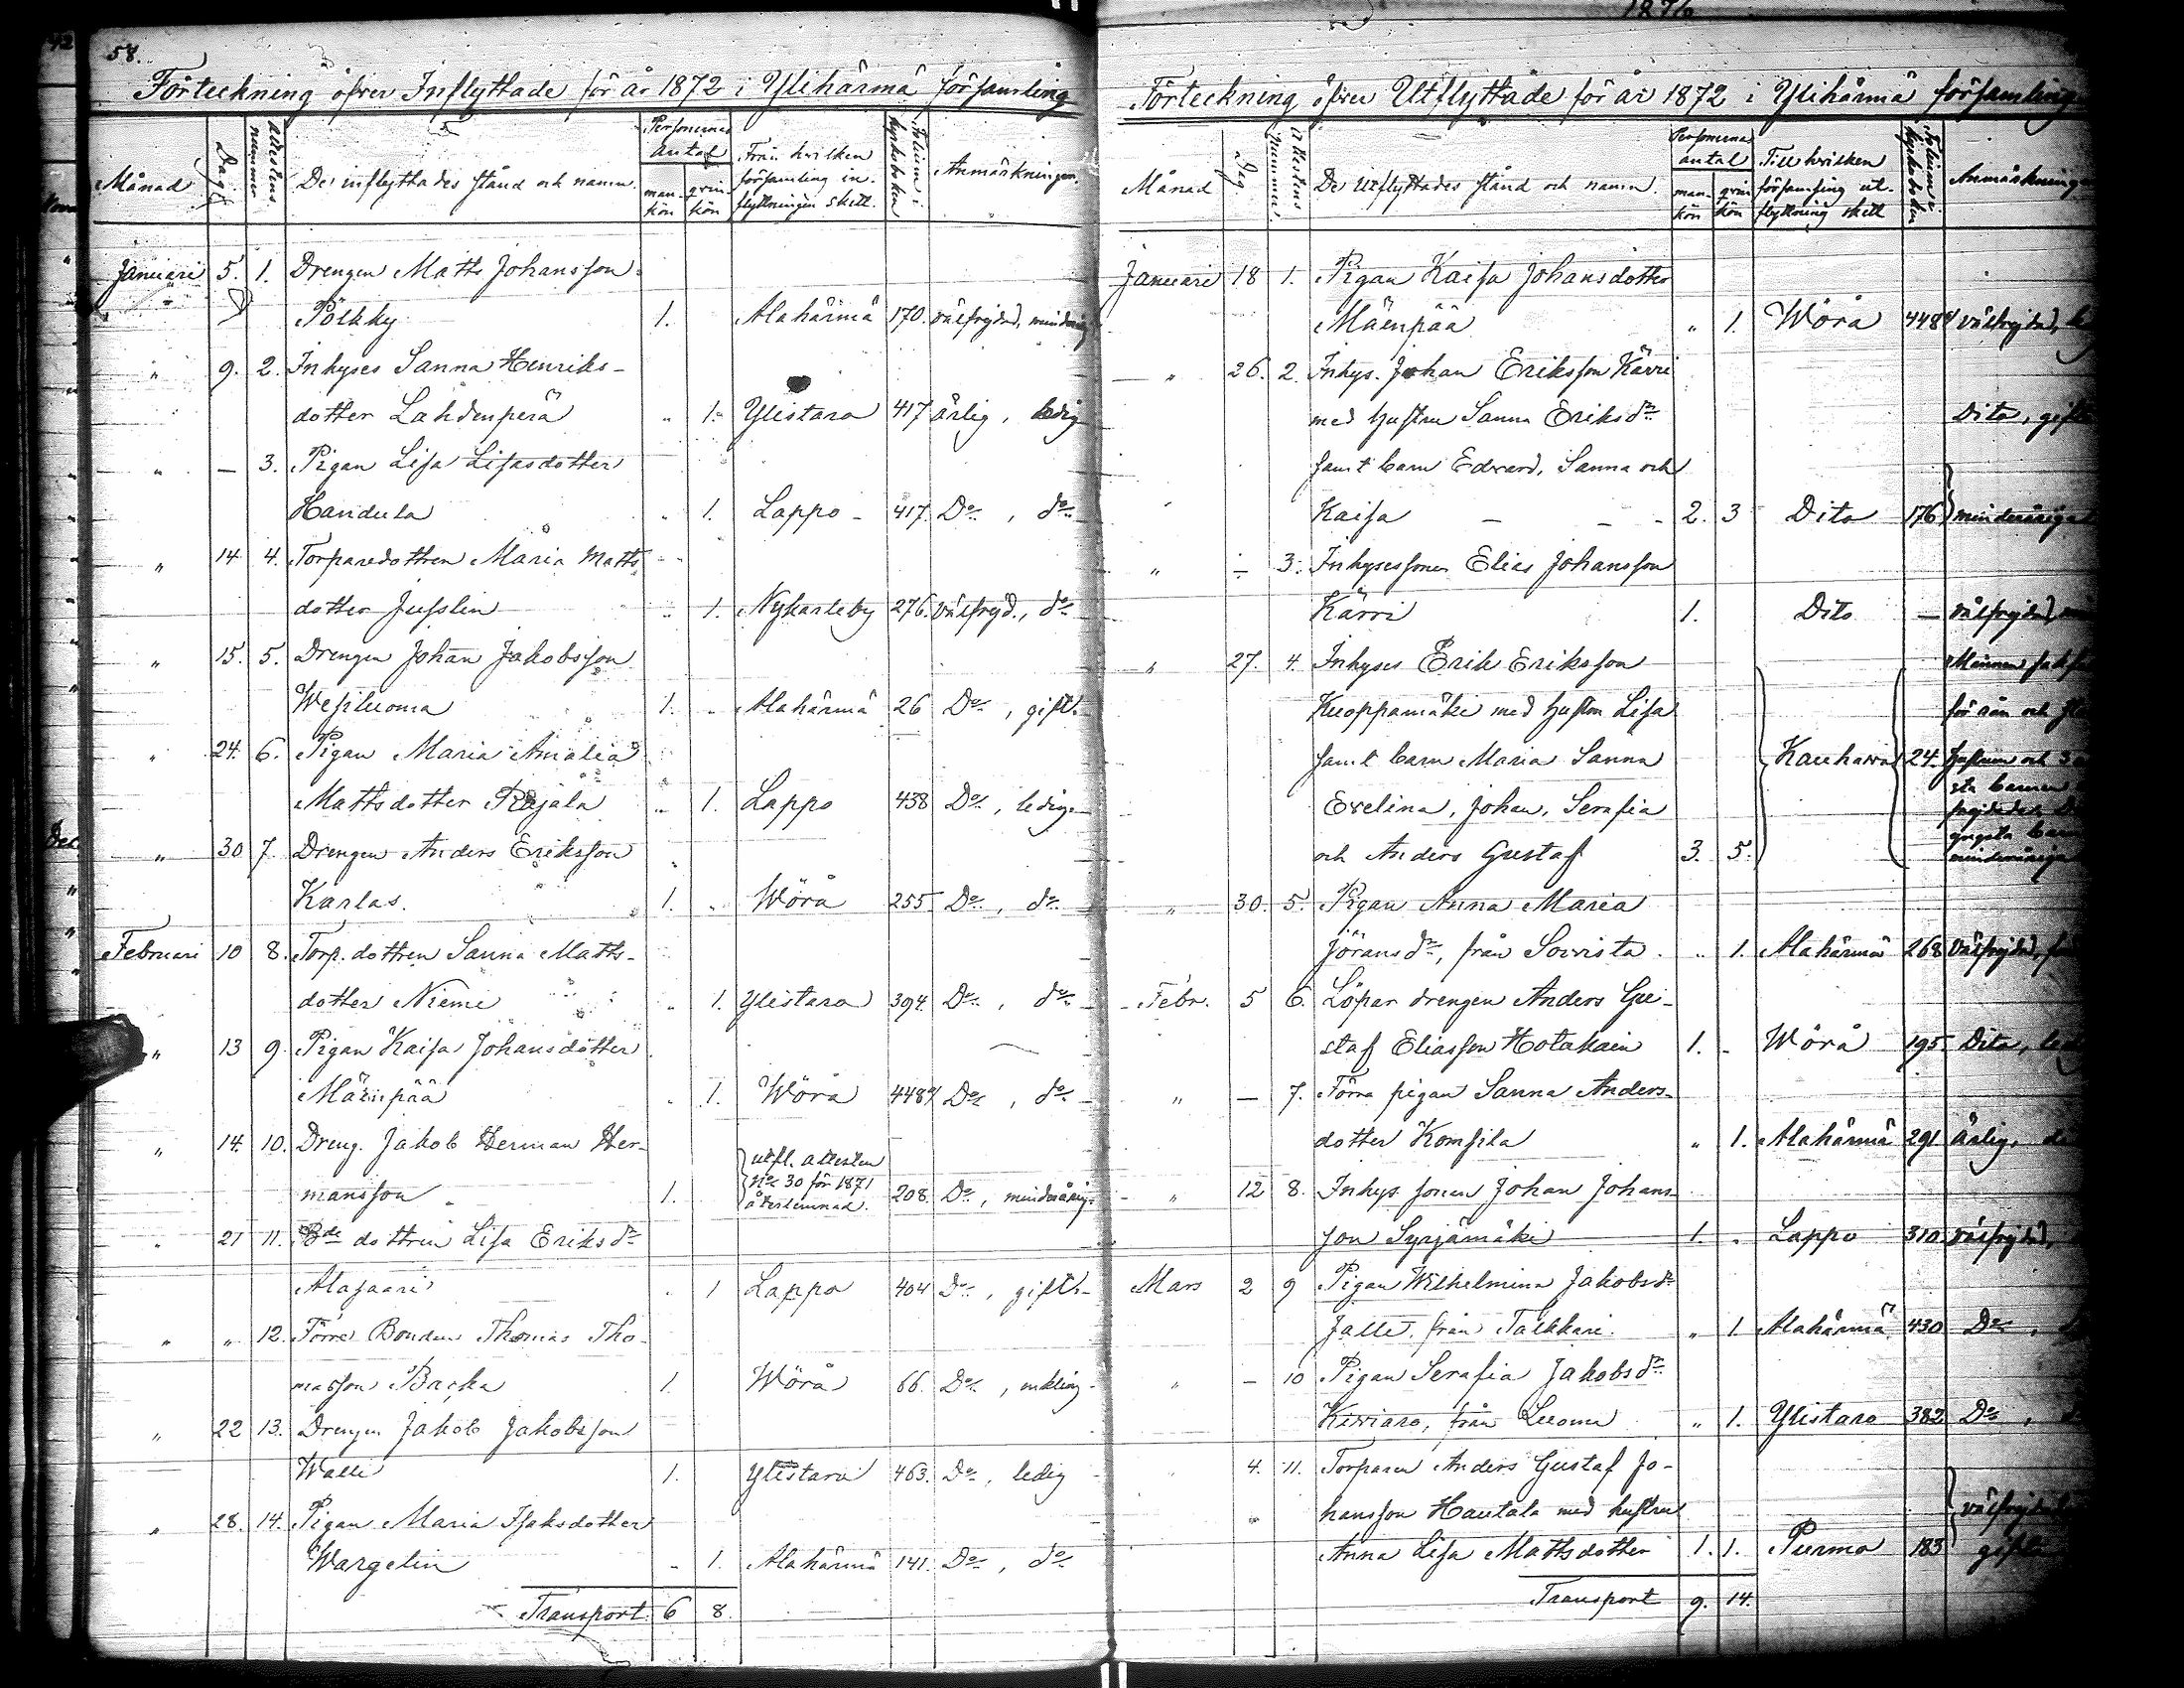 58.
Förteckning öfver Inflyttade för år 1872 i Ylihärmä församling
Månad Dag Attestens nummer De inflyttades stånd och namn. Personernas antal mankön qvinkön Från hvilken församling inflyttningen skett. Folium i kyrkoboken Anmärkningar.
Januari 5. 1. Drengen Matts Johansson
Pölkky 1. Alahärmä 170. välfrejdad, minderårig
" 9. 2. Inhyses Sanna Henriks-
dotter Lahdenperä " 1. Ylistaro 417 ärlig, ledig
" — 3. Pigan Lisa Lisasdotter
Handula " 1. Lappo - 417. Do, do
" 14 4. Torparedottren Maria Matts
dotter Jusslin " 1. Nykarleby 276. välfrejd., do
" 15. 5. Drengen Johan Jakobsson
Wesiluoma 1. " Alahärmä 26 Do, gift.
" 24. 6. Pigan Maria Amalia
Mattsdotter Rajala " 1. Lappo 438 Do, ledig.
" 30 7. Drengen Anders Eriksson
Karlas. 1. " Wörå 255 Do, do
Februari 10 8. Torp. dottren Sanna Matts-
dotter Niemi " 1. Ylistaro 394. Do, do
" 13 9. Pigan Kaisa Johansdotter
Mäenpää " 1. Wörå 448 Do, do
" 14. 10. Dreng. Jakob Herman Her-
mansson 1. utfl. attesten No 30 för 1871 återlemnad. 208. Do, minderårig.
" 21 11. Bde dottren Lisa Eriks dr
Alasaari " 1 Lappo 404 Do, gift.
" " 12. Förre Bonden Thomas Tho-
masson Backa 1. Wörå 66. Do, enkling
" 22 13. Drengen Jakob Jakobsson
Walli 1. Ylistaro 463. Do, ledig
" 28. 14. Pigan Maria Isaksdotter
Wargelin " 1. Alahärmä 141. Do, do
Transport 6 8.
Förteckning öfver Utflyttade för år 1872 i Ylihärmä församling
Månad Dag Attestens nummer. De utflyttades stånd och namn. Personernas antal mankön qvinkön Till hvilken församling utflyttning skett Folium i kyrkoboken Anmärkning
Januari 18 1. Pigan Kaisa Johansdotter
Mäenpää " 1. Wörå 448 välfrejdad,
" 26. 2. Inhys. Johan Eriksson Kärri
med hustru Sanna Eriks dr Dito, gift
samt barn Edvard, Sanna och
Kaisa — — - 2. 3 Dito 176 minderåriga
" — 3. Inhysessonen Elias Johansson
Kärri 1. Dito — välfrejdad,
" 27. 4. Inhyses Erik Eriksson
Kuoppamäki med hustru Lisa
samt barn Maria Sanna Kauhava 24. hustrun och
Evelina, Johan, Serafia
och Anders Gustaf 3. 5. minderåriga
" 30. 5. Pigan Anna Maria
Jörans dr, från Soivista. " 1. Alahärmä 268 välfrejdad,
Febr. 5 6. Löpar drengen Anders Gu-
staf Eliasson Hotakain 1. - Wörå 195. Dito,
" — 7. Förra pigan Sanna Anders-
dotter Komsila " 1. Alahärmä 291 ärlig,
" 12 8. Inhys. sonen Johan Johans-
son Syrjämäki 1. " Lappo 310. välfrejdad,
Mars 2 9 Pigan Wilhelmina Jakobs dr
Jalli från Talkkari. " 1 Alahärmä 430 Do,
" — 10 Pigan Serafia Jakobs dr
Kiviaro, från Luoma " 1. Ylistaro 382 Do,
4. 11. Torparen Anders Gustaf Jo-
" hansson Hautala med hustru välfrejdade
Anna Lisa Mattsdotter 1. 1. Purmo 183
Transport 9. 14.